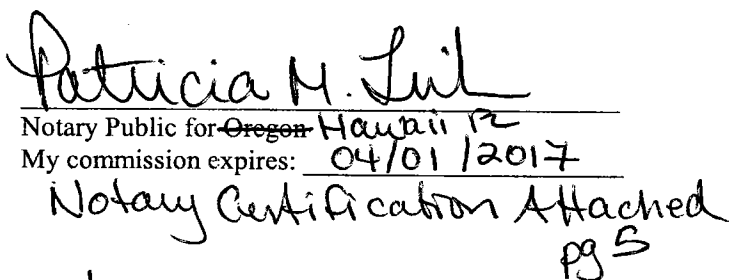 Patricia M.
Notary Public for Oregon Hawaii
My commission expires: 04/01/2017
Notary Certification Attached
pg 5